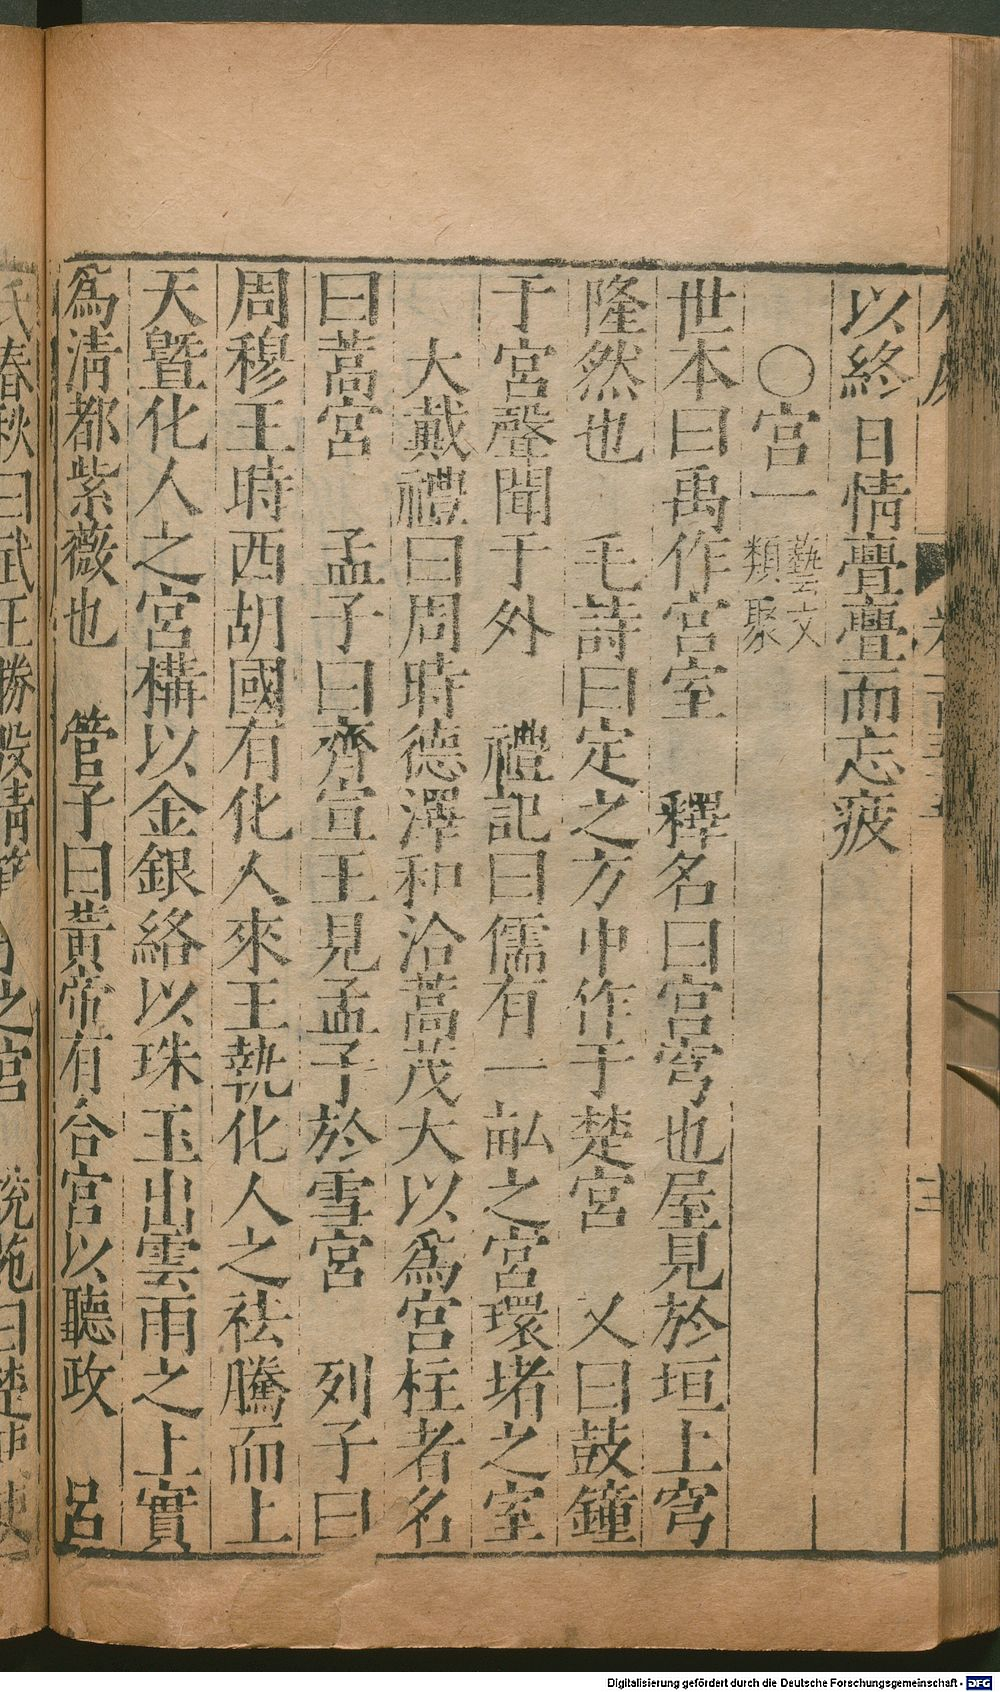 以終日情亹亹而忘疲
○宮一 藝文類聚
世本曰禹作宮室 釋名曰宮穹也屋見於垣上穹
隆然也 毛詩曰定之方中作于楚宮 又曰鼓鐘
于宮聲聞于外 禮記曰儒有一畝之宮環堵之室
大戴禮曰周時德澤和洽蒿茂大以為宮柱者名
曰蒿宮 孟子曰齊宣王見孟子於雪宮 列子曰
周穆王時西胡國有化人來王執化人之袪騰而上
天曁化人之宮構以金銀絡以珠玉出雲雨之上實
為清都紫薇也 管子曰黃帝有合宮以聽政 呂
氏春秋曰武王勝殷靖箕子之宮 說苑曰楚使
Digitalisierung gefördert durch die Deutsche Forschungsgemeinschaft - DFG